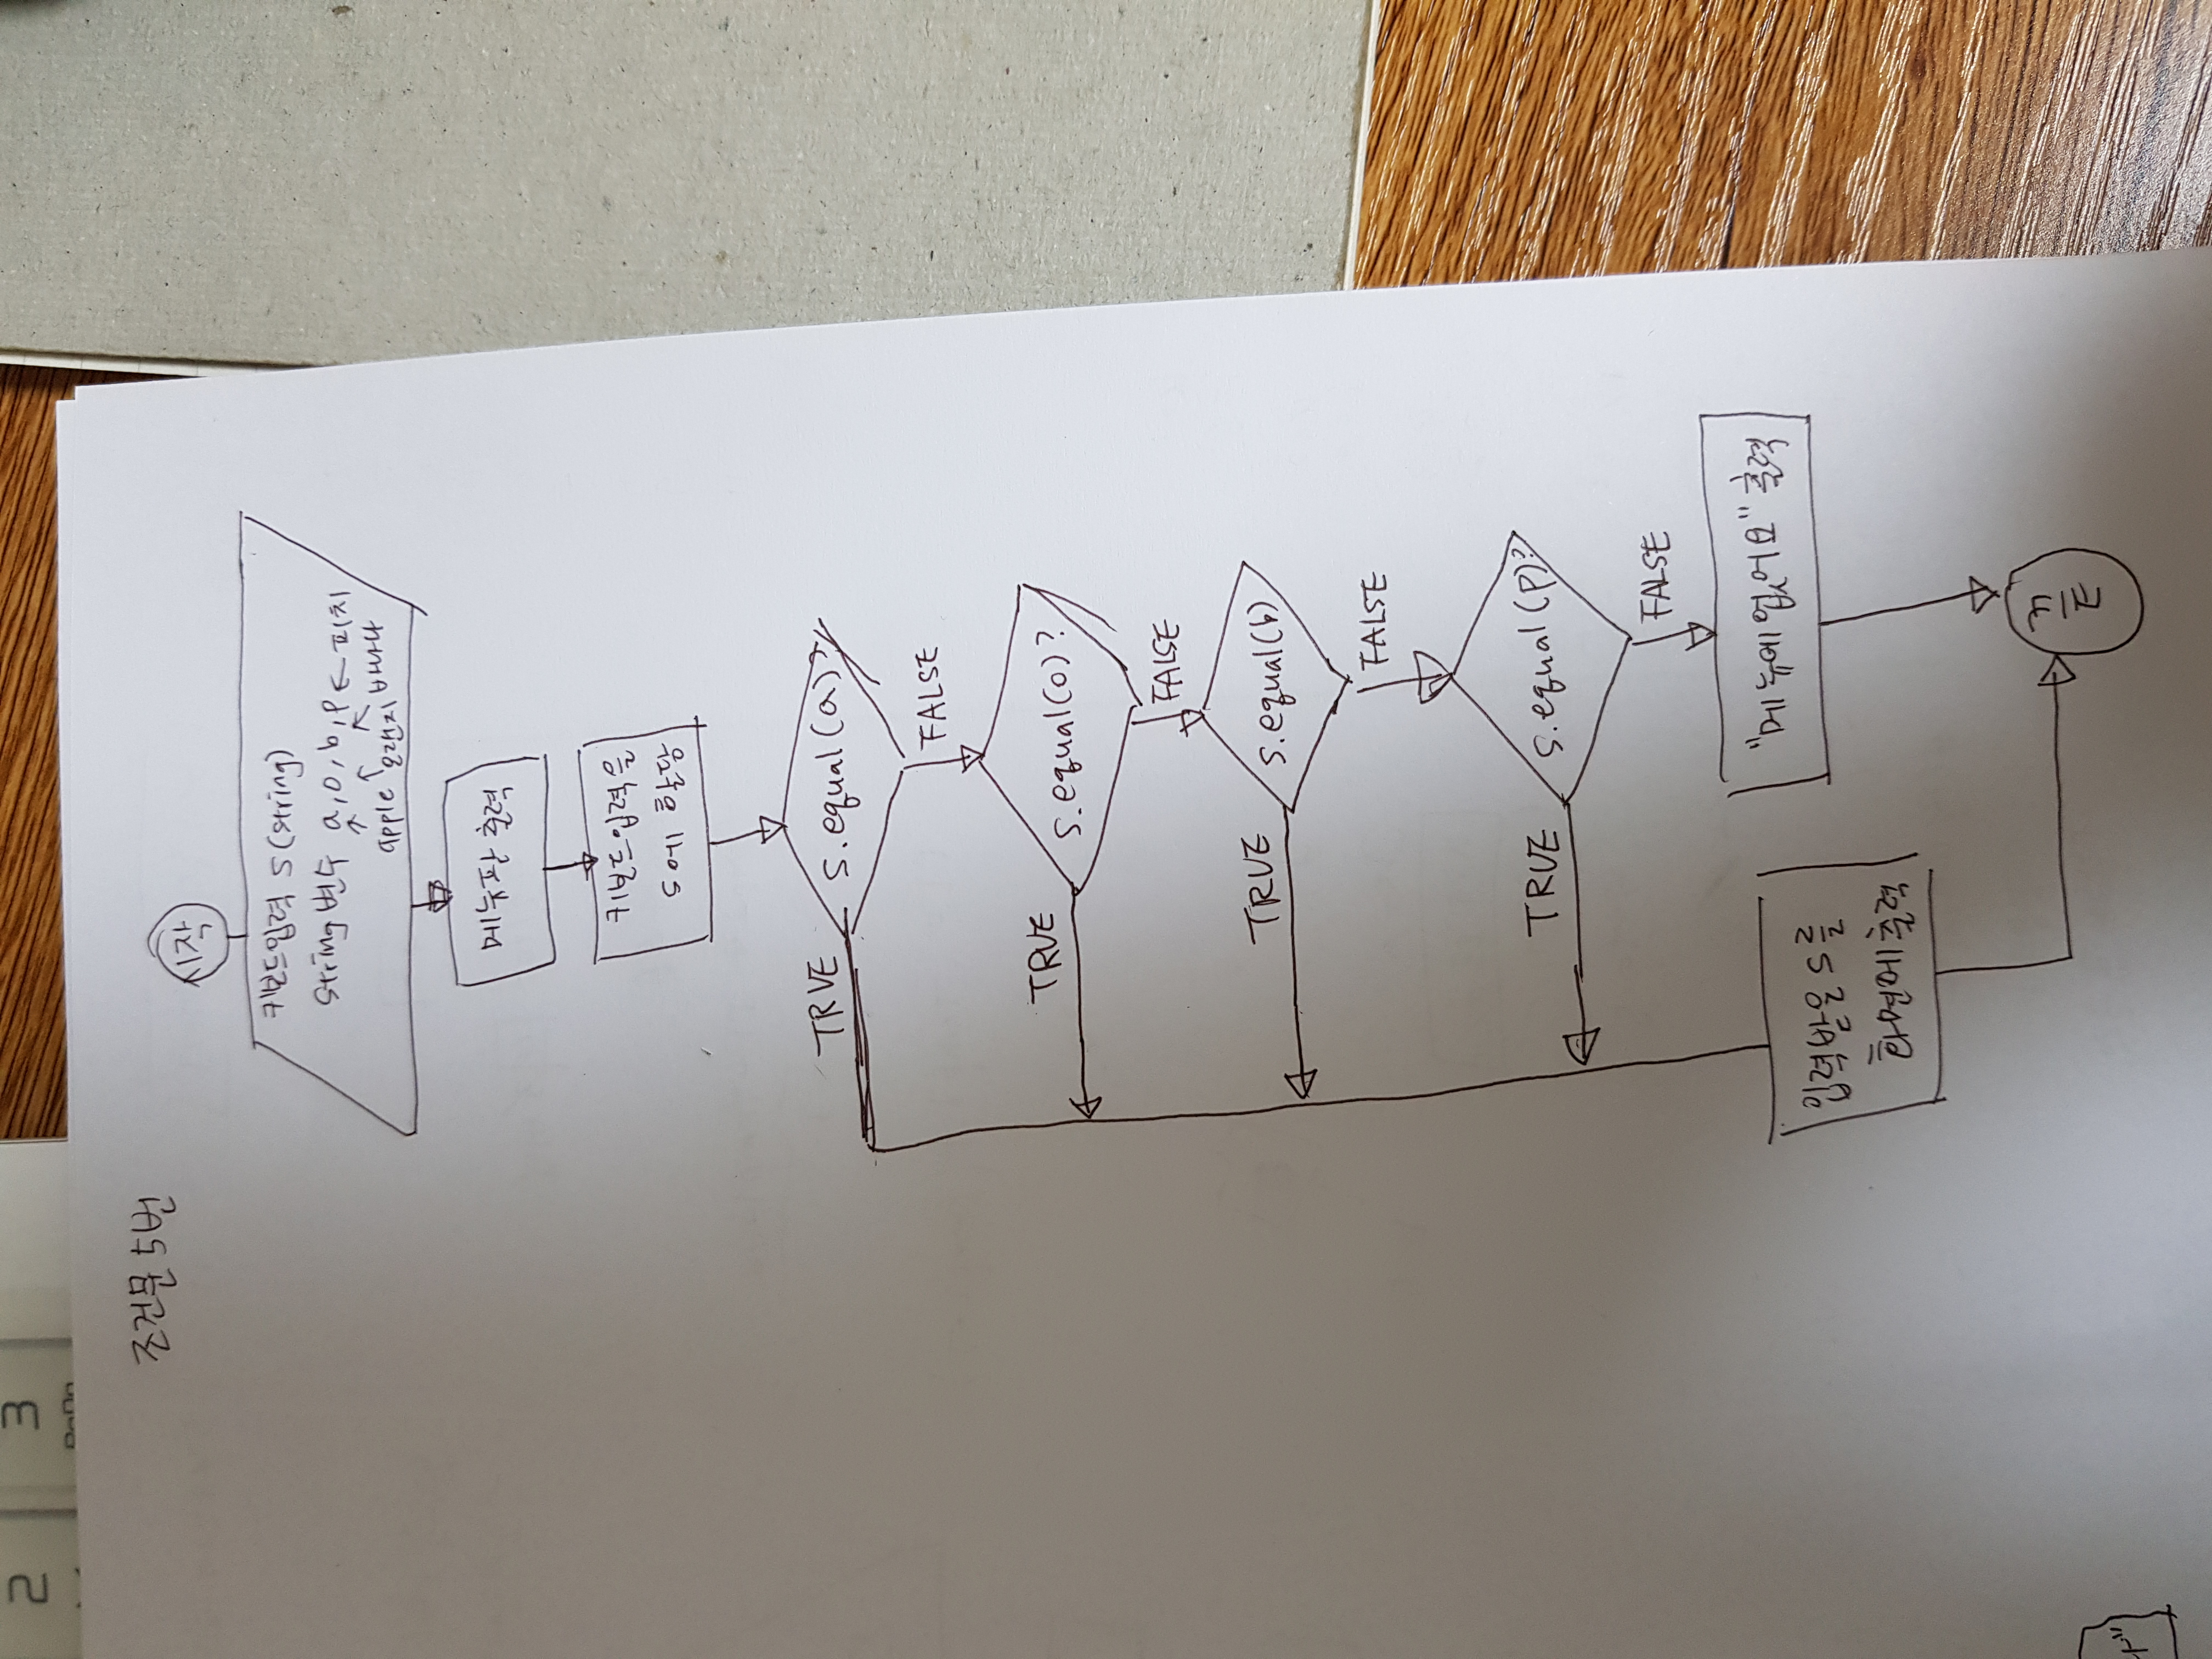 2
3
PgDn
조건문 5번
시작
키보드입력 s(string)
string 변수 a, o, b, p ← 피치
apple 오랜지 바나나
메뉴판 출력
키보드입력을
s에 할당
s.equal(a)?
TRUE
FALSE
s.equal(o)?
TRUE
FALSE
s.equal(b)
TRUE
FALSE
s.equal(p)?
TRUE
FALSE
"메뉴에 없어요" 출력
입력받은 s를
화면에 출력
끝